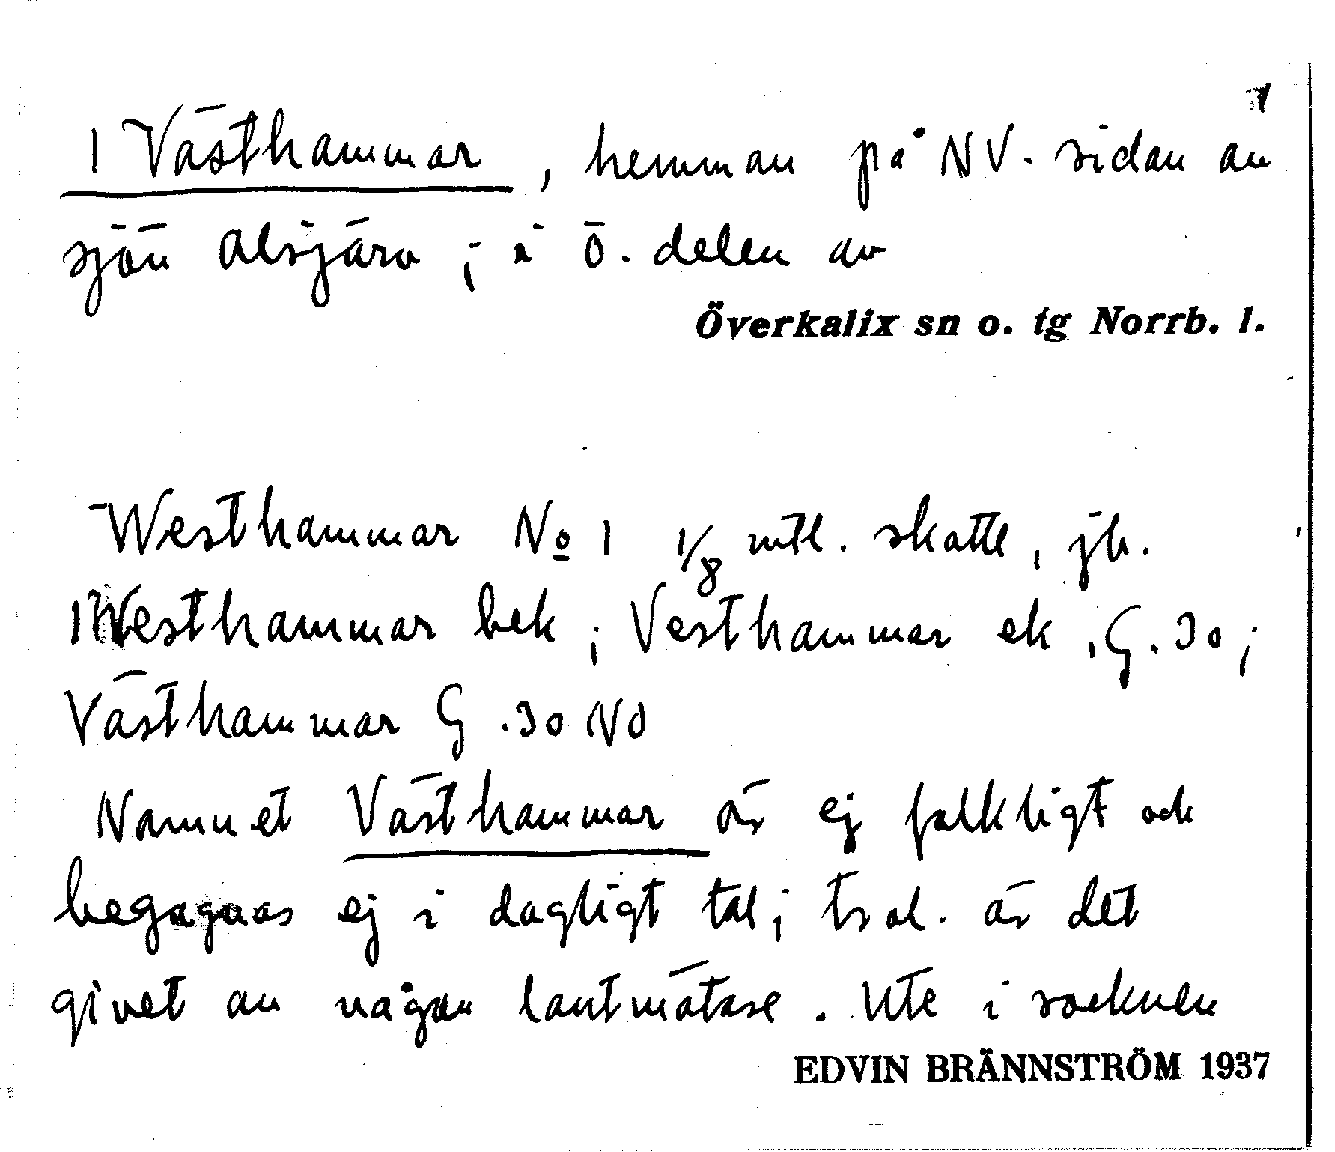 1
1 Västhammar, hemman på NV. sidan av
sjön Alsjärv; i ö. delen av
Överkalix sn o. tg Norrb. l.
Westhammar No 1 1/8 mtl. skatte, jb.
1 Westhammar bek; Vesthammar ek, G. 30;
Västhammar G. 30 NO
Namnet Västhammar är ej folkligt och
begagnas ej i dagligt tal; trol. är det
givet av någon lantmätare. Ute i socknen
EDVIN BRÄNNSTRÖM 1937